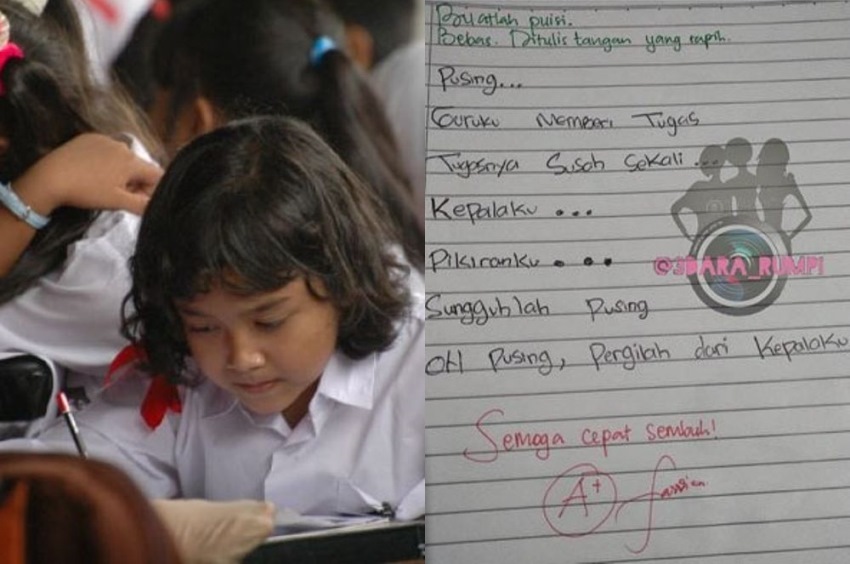 Buatlah puisi.
Bebas. Ditulis tangan yang rapih.
Pusing...
Guruku Memberi Tugas
Tugasnya Susah Sekali ...
Kepalaku ...
Pikiranku ...
Sungguhlah Pusing
OH Pusing, Pergilah dari Kepalaku
@3DARA_RUMPI
Semoga cepat sembuh!
A+